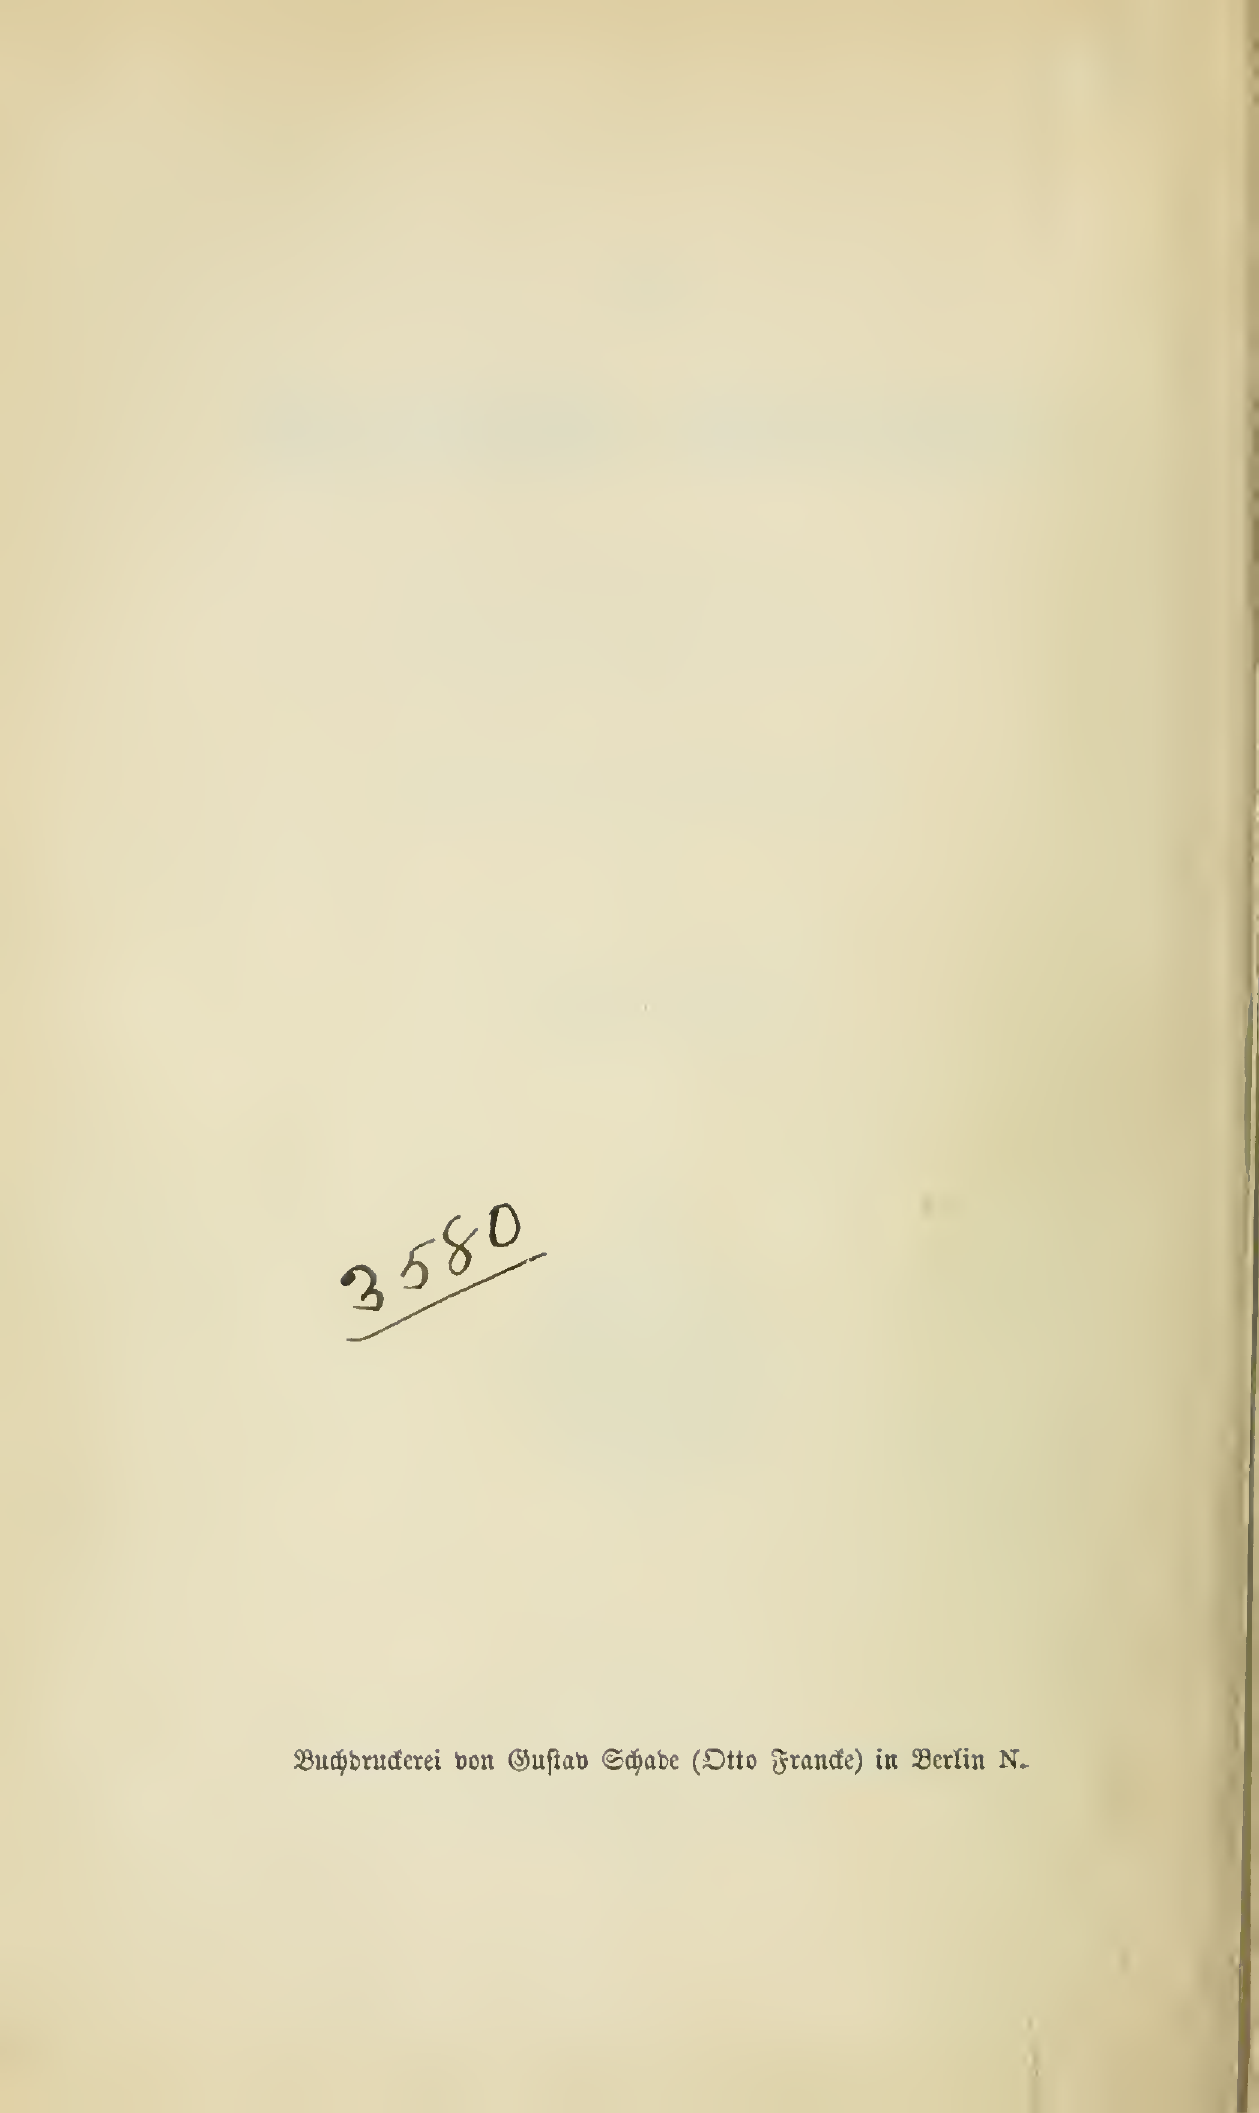 3580
Buchdruckerei von Gustav Schade (Otto Francke) in Berlin N.